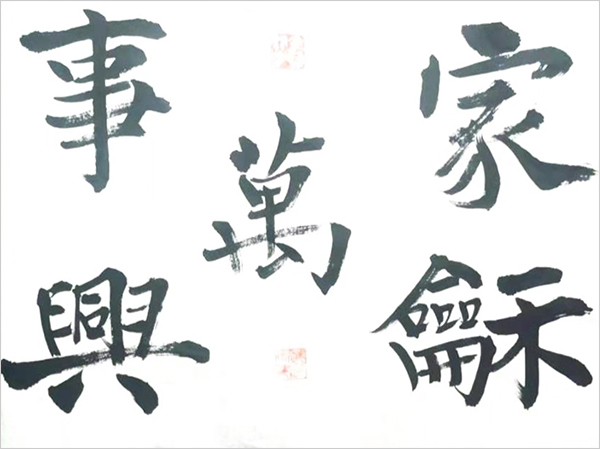 家龢
萬
事興